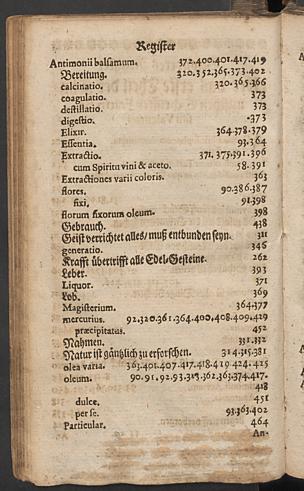 Register
Antimonii balsamum. 372.400.401.417.419
Bereitung. 320.352.365.373.402
calcinatio. 320.365.366
coagulatio. 373
destillatio. 373
digestio. 373
Elixir. 364.378.379
Essentia. 93.364
Extractio. 371.375.391.396
cum Spiritu vini & aceto. 58.391
Extractiones varii coloris. 363
flores. 90.386.387
fixi, 91.398
florum fixorum oleum. 398
Gebrauch. 438
Geist verrichtet alles/ muß entbunden seyn. 311
generatio. 346
Krafft übertrifft alle Edel-Gesteine. 262
Leber. 393
Liquor. 371
Lob. 369
Magisterium. 364.377
mercurius. 92.320.361.364.400.408.409.429
præcipitatus. 452
Nahmen. 331.332
Natur ist gäntzlich zu erforschen. 314.315.381
olea varia. 363.401.407.417.418.419.424.425
oleum. 90.91.92.93.315.362.363.374.417.
418
dulce. 451
per se. 93.363.402
Particular. 464
An-